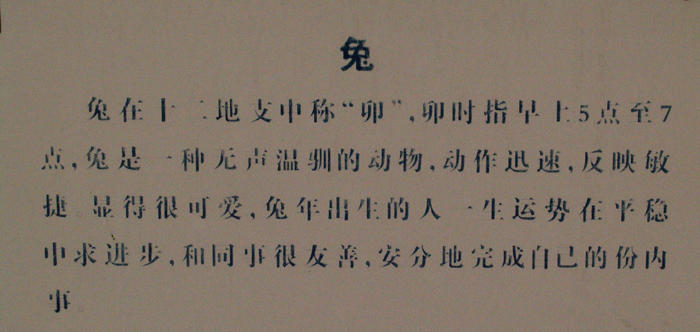 兔
兔在十二地支中称“卯”，卯时指早上5点至7
点，兔是一种无声温驯的动物，动作迅速，反映敏
捷。显得很可爱，兔年出生的人一生运势在平稳
中求进步，和同事很友善，安分地完成自己的份内
事。